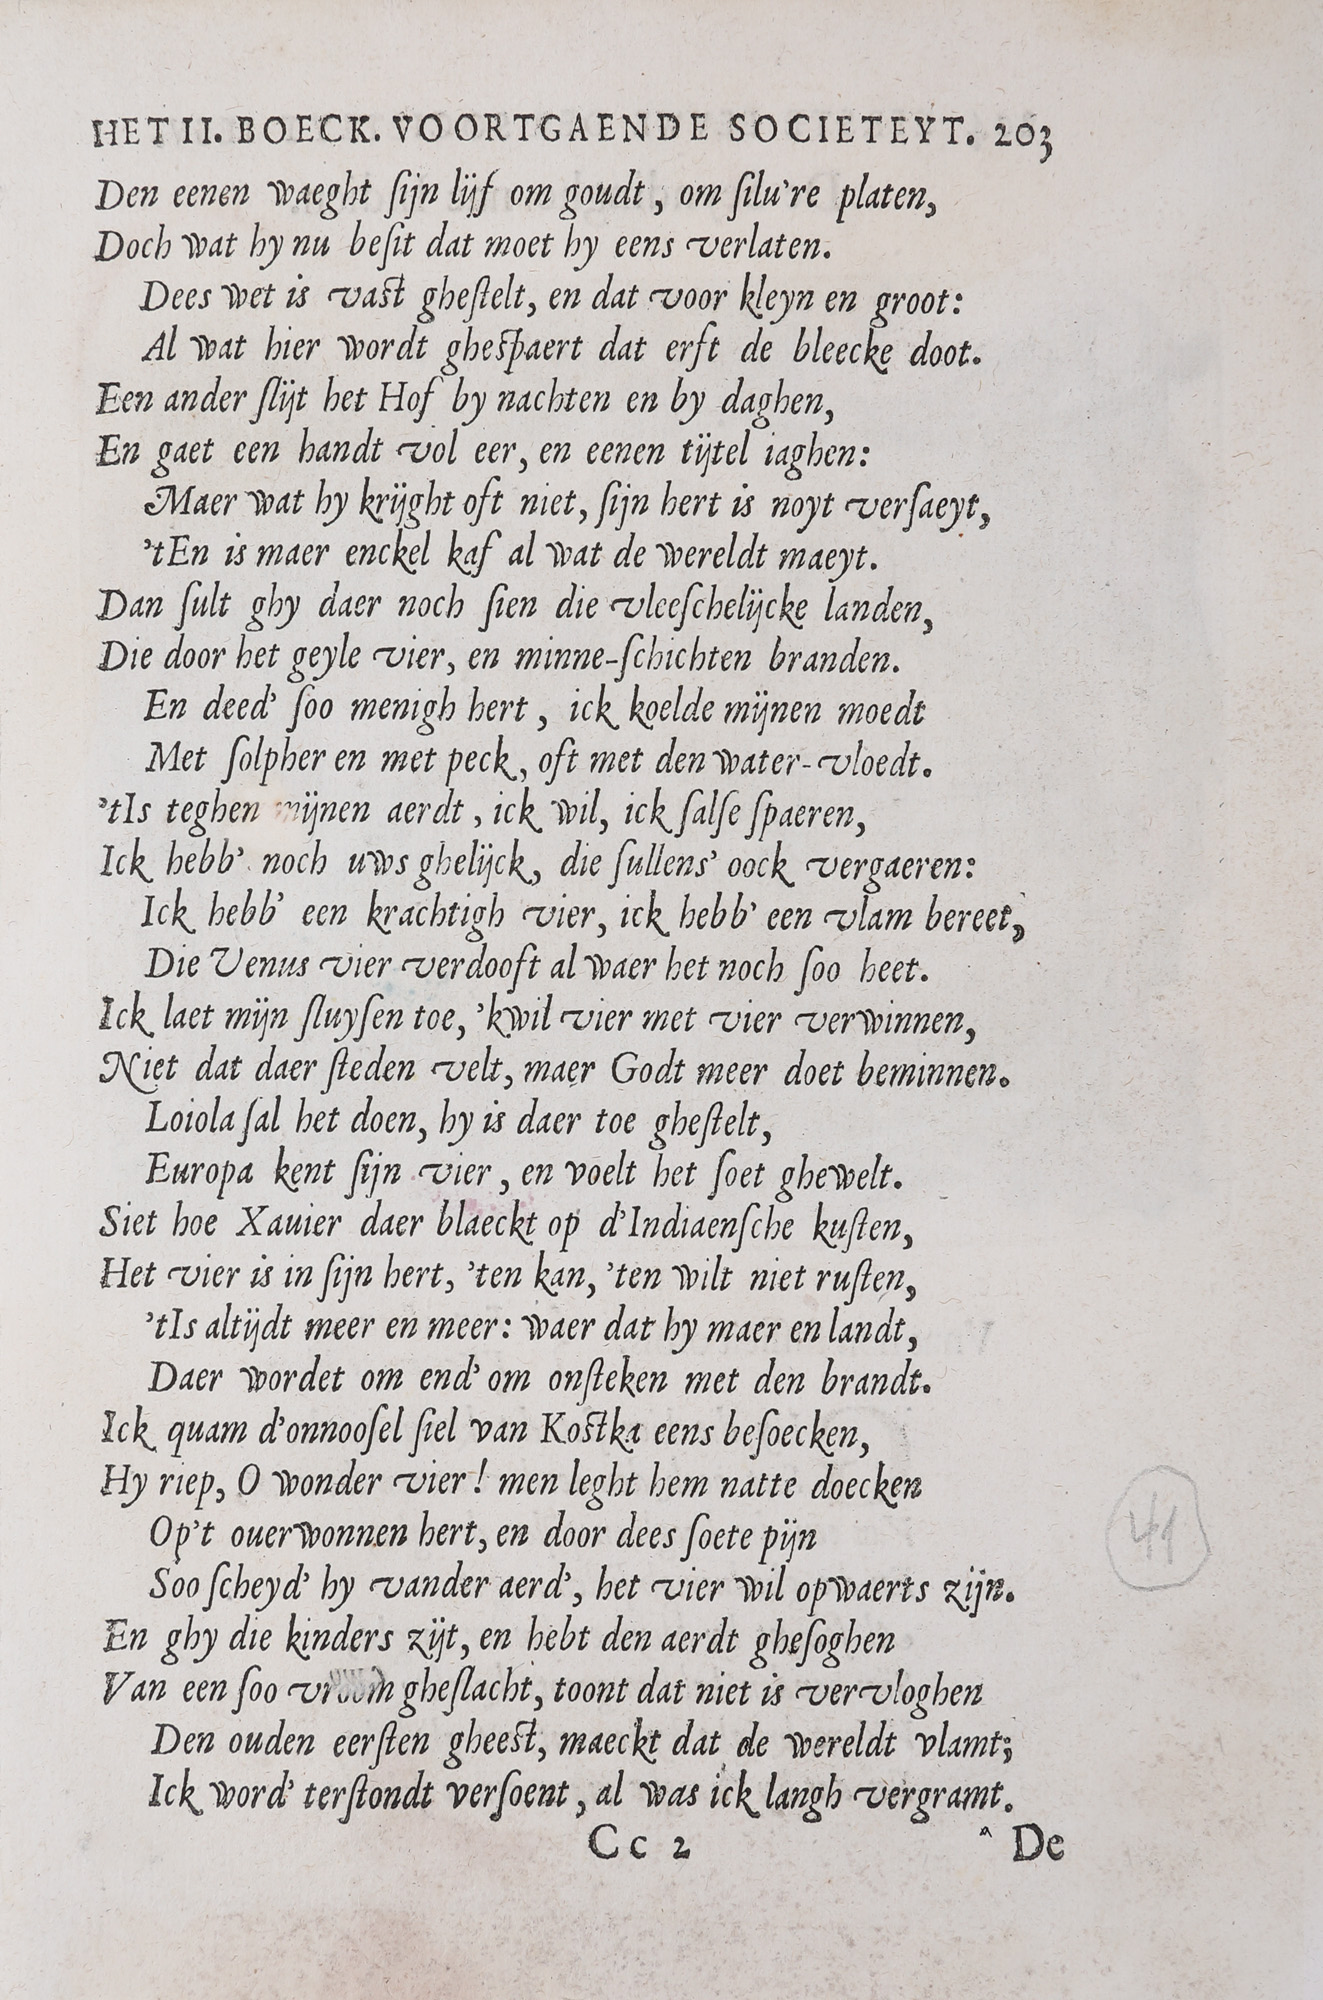 HET II. BOECK. VOORTGAENDE SOCIETEYT. 203
Den eenen waeght ſijn lijf om goudt, om ſilu're platen,
Doch wat hy nu beſit dat moet hy eens verlaten.
Dees wet is vast gheſtelt, en dat voor kleyn en groot:
Al wat hier wordt ghespaert dat erft de bleecke doot.
Een ander ſlijt het Hof by nachten en by daghen,
En gaet een handt vol eer, en eenen tijtel iaghen:
Maer wat hy krijght oft niet, ſijn hert is noyt verſaeyt,
'tEn is maer enckel kaf al wat de wereldt maeyt.
Dan ſult ghy daer noch ſien die vleeſchelijcke landen,
Die door het geyle vier, en minne-ſchichten branden.
En deed' ſoo menigh hert, ick koelde mijnen moedt
Met ſolpher en met peck, oft met den water-vloedt.
'tIs teghen mijnen aerdt, ick wil, ick ſalſe ſpaeren,
Ick hebb' noch uws ghelijck, die ſullens' oock vergaeren:
Ick hebb' een krachtigh vier, ick hebb' een vlam bereet,
Die Venus vier verdooft al waer het noch ſoo heet.
Ick laet mijn ſluyſen toe, 'kwil vier met vier verwinnen,
Niet dat daer ſteden velt, maer Godt meer doet beminnen.
Loiola ſal het doen, hy is daer toe gheſtelt,
Europa kent ſijn vier, en voelt het ſoet ghewelt.
Siet hoe Xauier daer blaeckt op d'Indiaenſche kuſten,
Het vier is in ſijn hert, 'ten kan, 'ten wilt niet ruſten,
'tIs altijdt meer en meer: waer dat hy maer en landt,
Daer wordet om end' om onſteken met den brandt.
Ick quam d'onnooſel ſiel van Kostka eens beſoecken,
Hy riep, O wonder vier! men leght hem natte doecken
Op't ouerwonnen hert, en door dees ſoete pijn
Soo ſcheyd' hy vander aerd', het vier wil opwaerts zijn.
En ghy die kinders zijt, en hebt den aerdt gheſoghen
Van een ſoo vroom gheſlacht, toont dat niet is vervloghen
Den ouden eerſten gheest, maeckt dat de wereldt vlamt;
Ick word' terſtondt verſoent, al was ick langh vergramt.
Cc 2 De
41